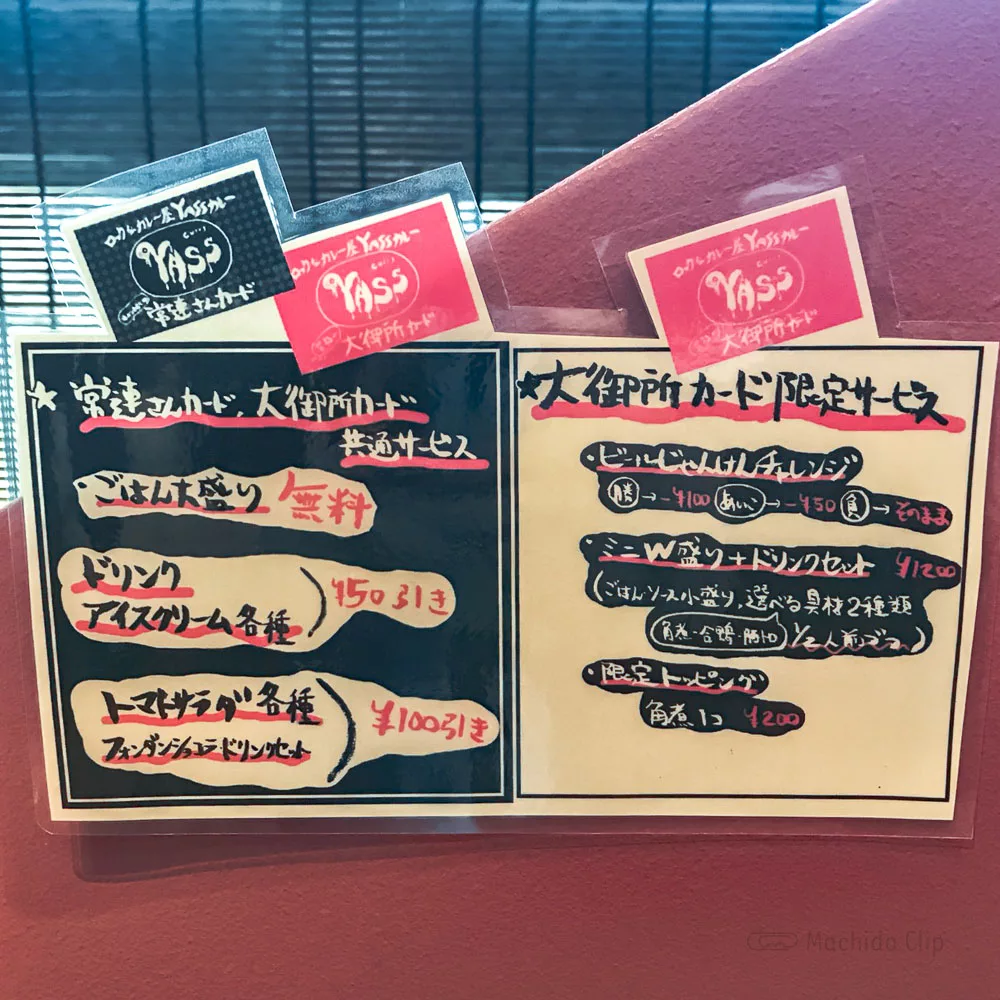 ロックなカレー屋YASSカレー
curry
YASS
常連さんカード
ロックなカレー屋YASSカレー
curry
YASS
大御所カード
ロックなカレー屋YASSカレー
curry
YASS
大御所カード
★常連さんカード、大御所カード
共通サービス
・ごはん大盛り 無料
ドリンク
アイスクリーム各種
¥50引き
トマトサラダ各種
フォンダンショコラ・ドリンクセット
¥100引き
★大御所カード限定サービス
・ビールじゃんけんチャレンジ
勝→-¥100 あいこ→-¥50 負→そのまま
・ミニW盛り+ドリンクセット ¥1200
(ごはん、ソース小盛り、選べる具材2種類
角煮・合鴨・豚トロ 1/2人前づつ)
・限定トッピング
角煮1コ ¥200
Machida Clip